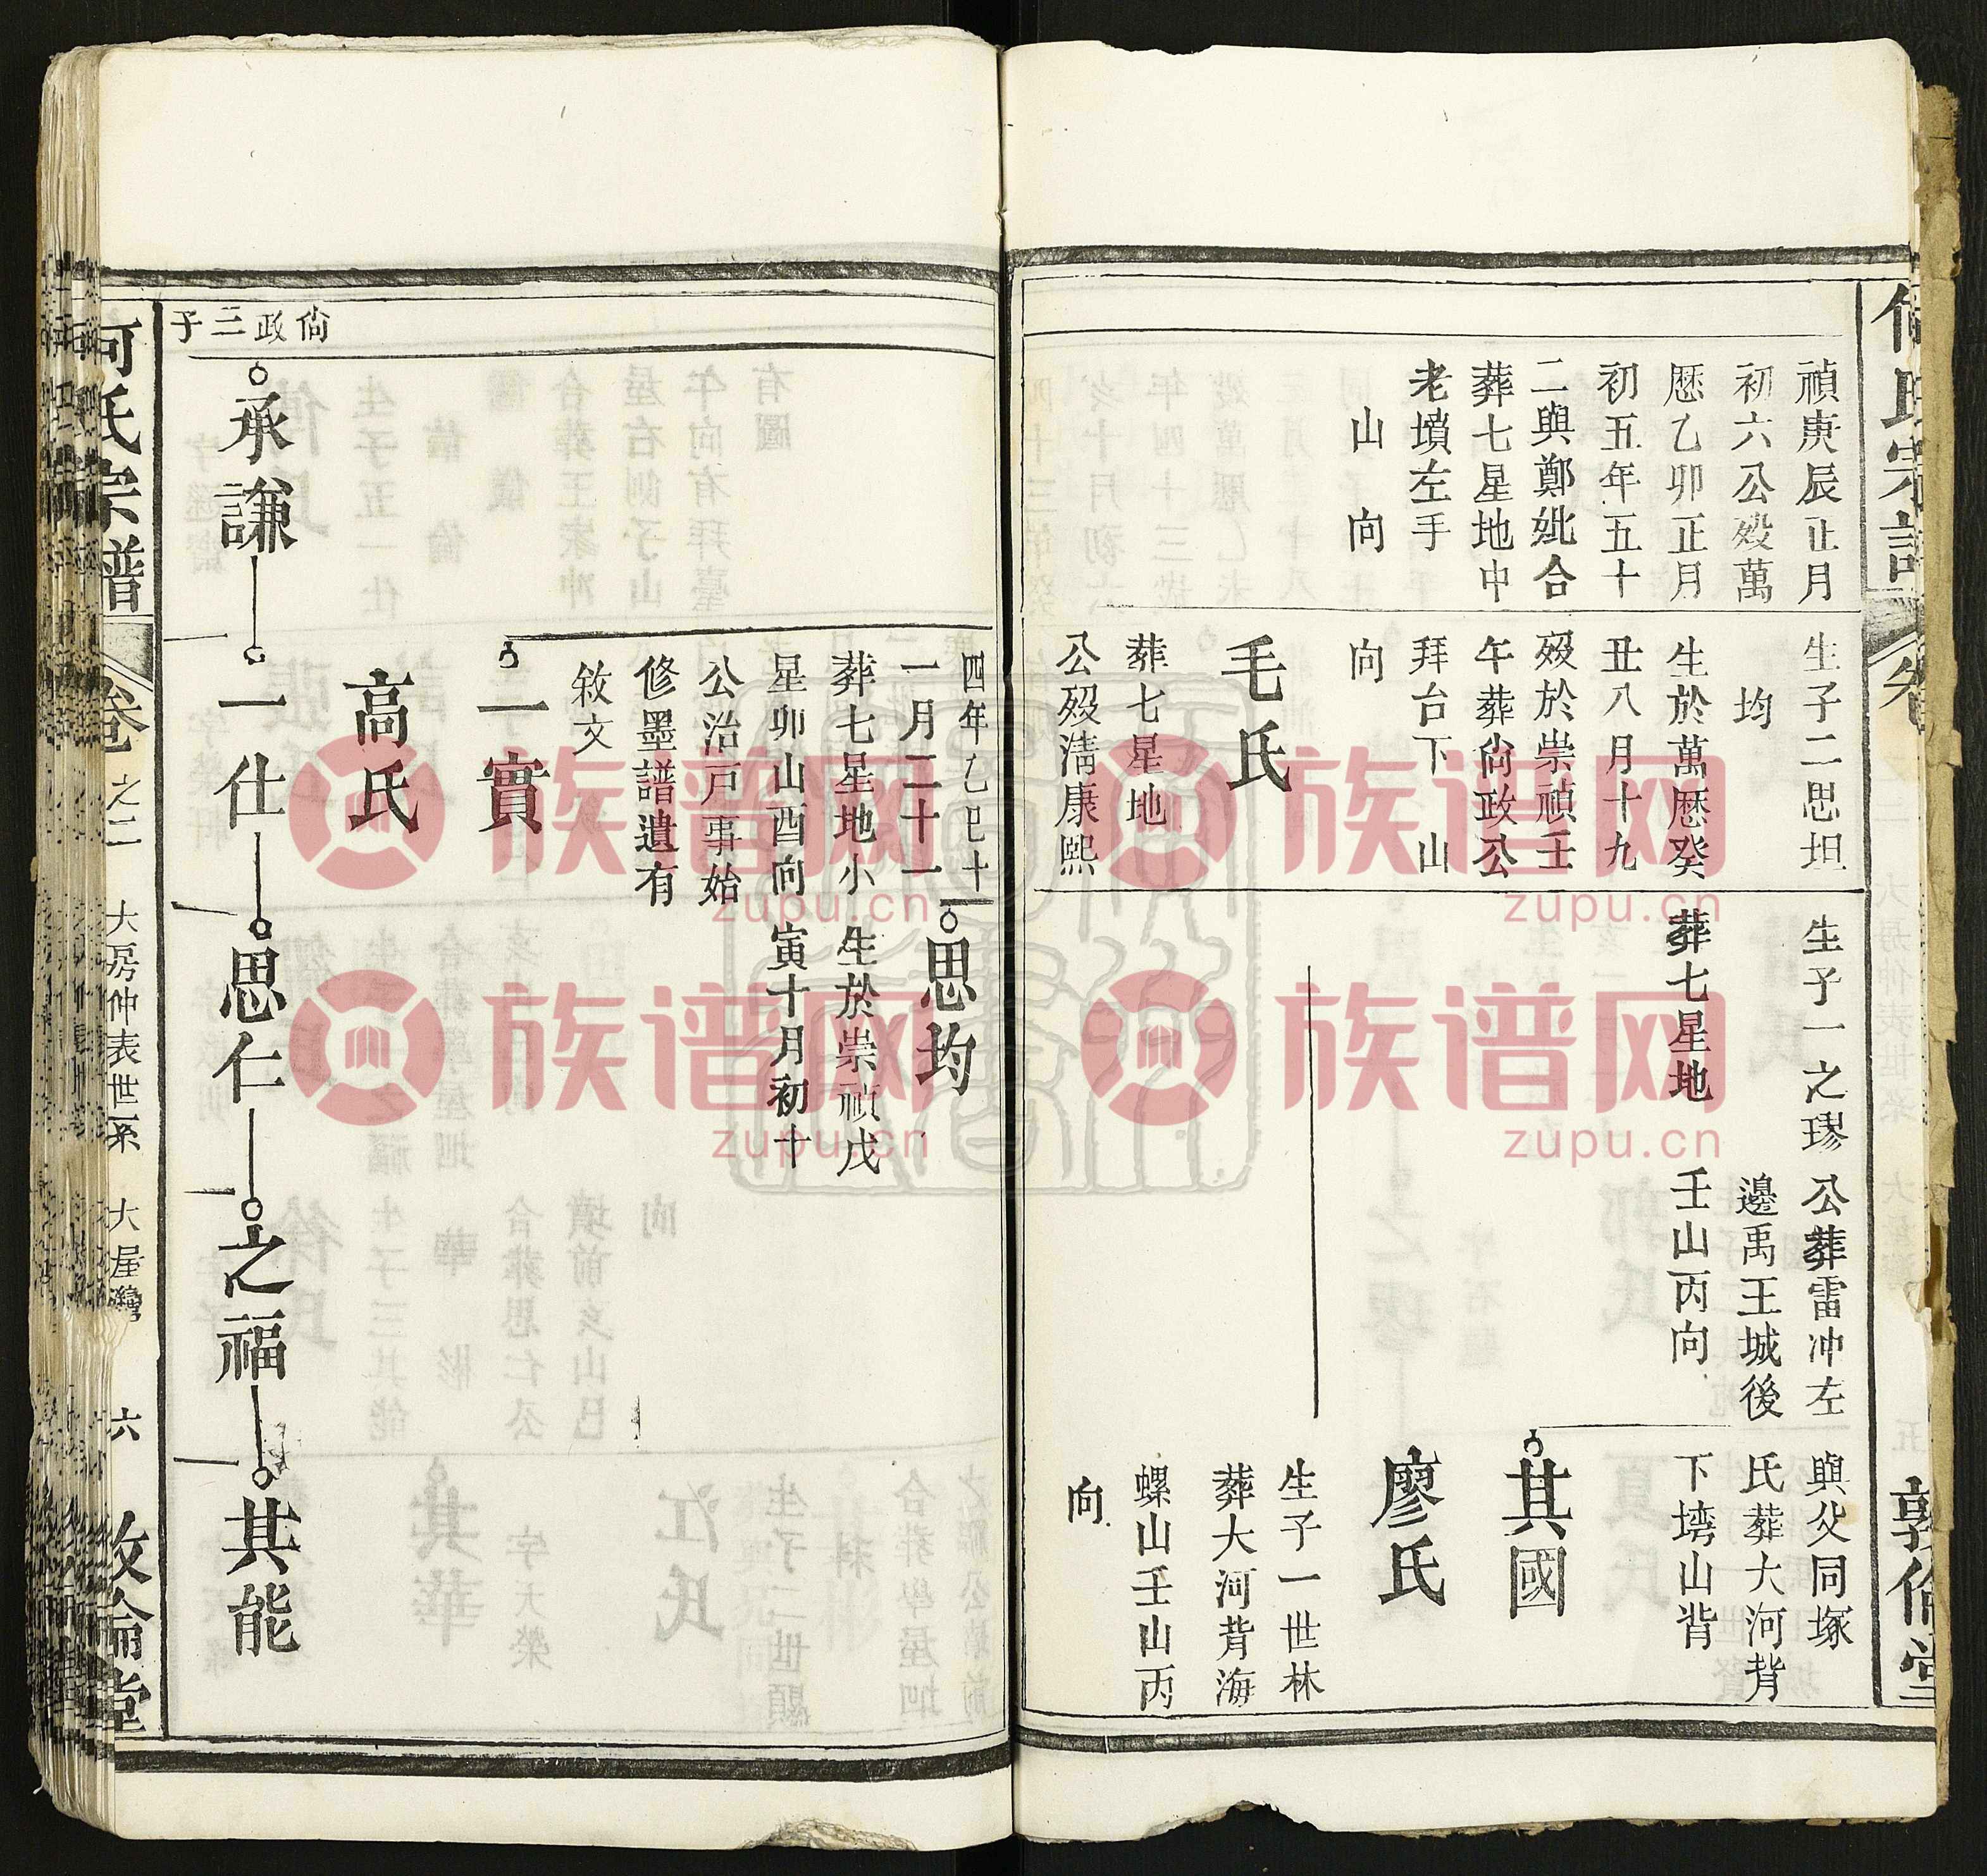 禎庚辰正月
初六公歿萬
歷乙卯正月
初五年五十
二與鄭妣合
葬七星地中
老墳左手
山向
生子二思坦
均
生於萬歷癸
丑八月十九
歿於崇禎壬
午葬尙政公
拜台下山
向
毛氏
葬七星地
公歿淸康熙
生子一之璆
葬七星地
公葬雷冲左
邊禹王城後
壬山丙向
與父同塚
氏葬大河背
下塆山背
其國
廖氏
生子一世林
葬大河背海
螺山壬山丙
向
敦倫堂
四年乙巳十
一月二十一
葬七星地小
星卯山酉向
公治戸事始
修墨譜遺有
敘文
一實
高氏
思均
生於崇禎戊
寅十月初十
尙政三子
承謙
一仕
思仁
之福
其能
何氏宗譜
卷之二
大房仲表世系
大屋灣
六
敦倫堂
族谱网
zupu.cn
族谱网
zupu.cn
族谱网
zupu.cn
族谱网
zupu.cn